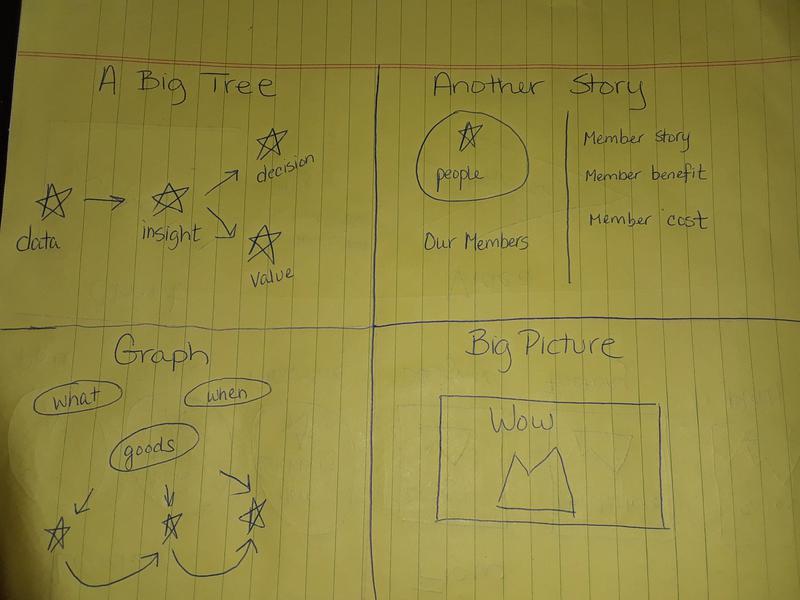 A Big Tree
decision
data
insight
value
Another Story
people
Our Members
Member story
Member benefit
Member cost
Graph
what
when
goods
Big Picture
Wow